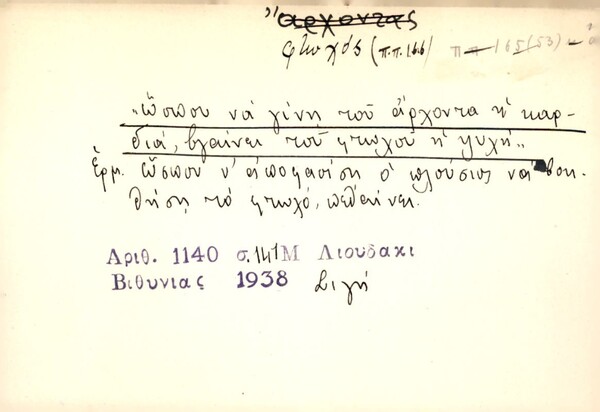 ἄρχοντας
φτωχός (π.π. 166) π π 165 (53)
„ὥσπου νά γίνῃ τοῦ ἄρχοντα ἡ καρ-
διά, βγαίνει τοῦ φτωχοῦ ἡ ψυχή„
Ἑρμ. ὥσπου ν' ἀποφασίσῃ ὁ πλούσιος νά βοη-
θήσῃ τό φτωχό, πεθαίνει.
Αριθ. 1140 σ. 141 Μ Λιουδακι
Βιθυνιας 1938 Σιγή